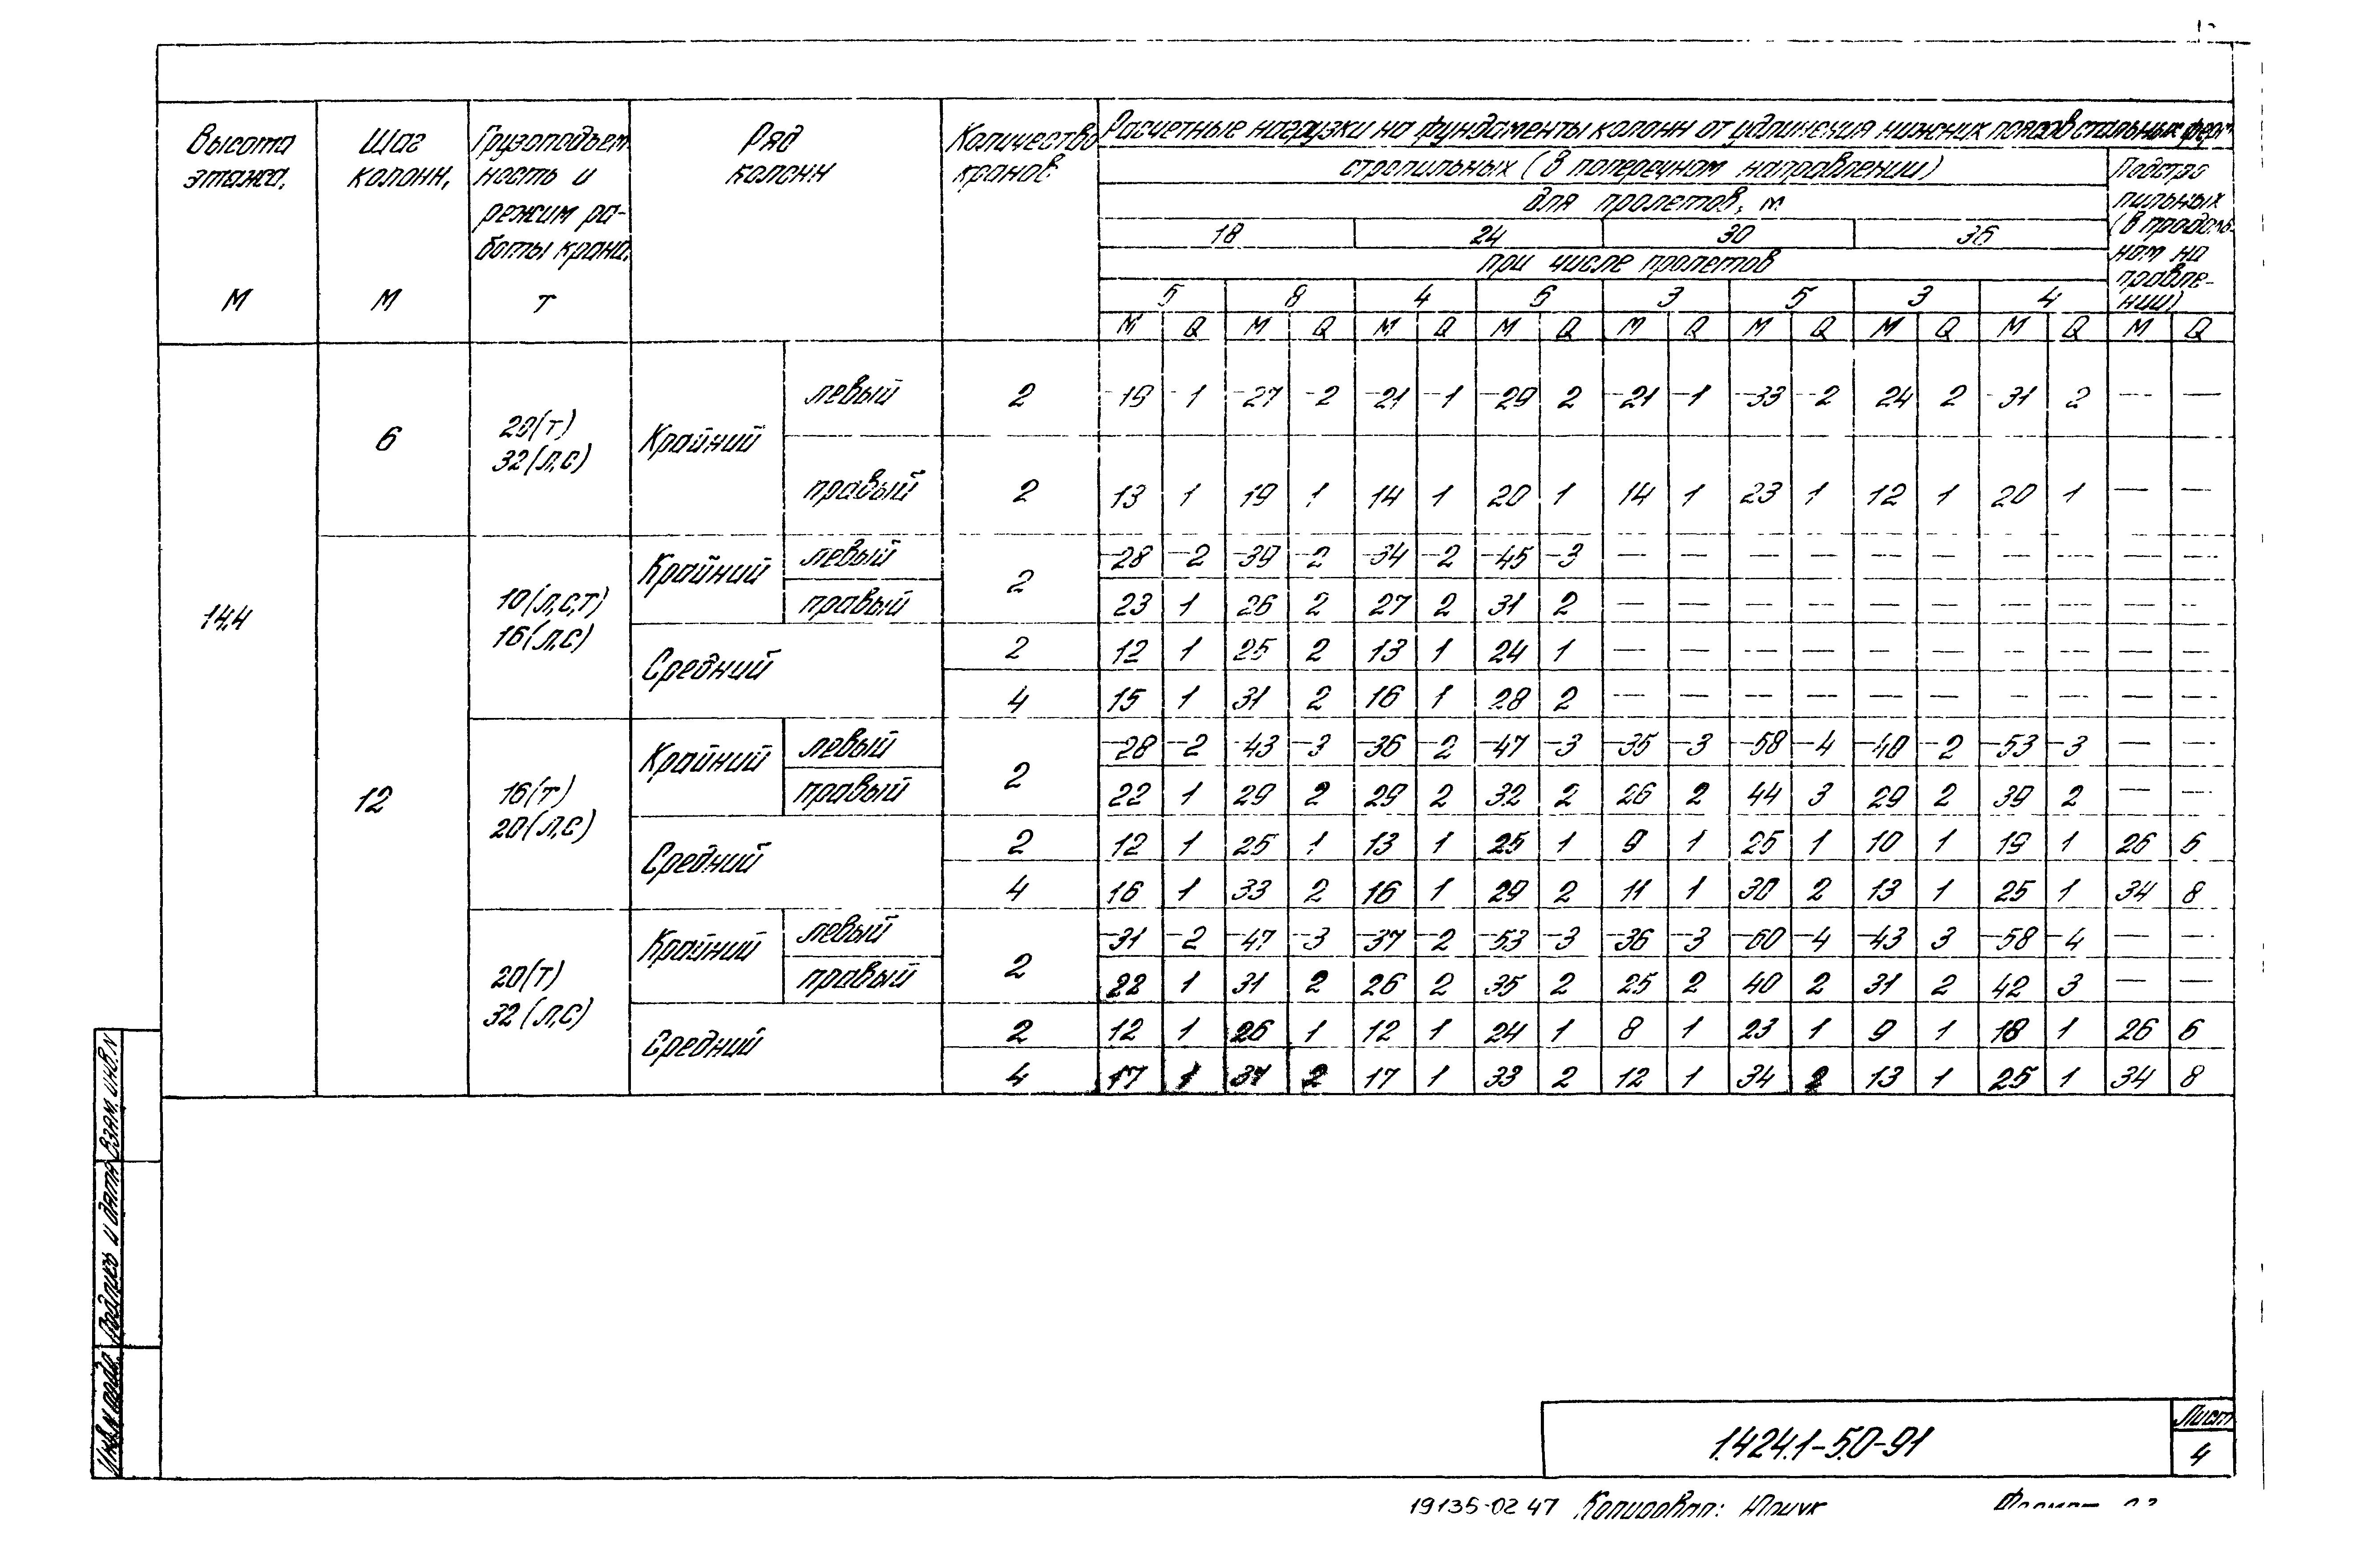 Расчетные нагрузки на фундаменты колонн от удлинения нижних поясов стальных ферм
Высота этажа, М
Шаг колонн, М
Грузоподъемность и режим работы крана, т
Ряд колонн
Количество кранов
стропильных (в поперечном направлении)
Подстропильных (в продольном направлении)
для пролетов, м
18 24 30 36
при числе пролетов
5 8 4 6 3 5 3 4
M Q M Q M Q M Q M Q M Q M Q M Q M Q
14,4
6 20(т) 32(л,с) Крайний
левый 2 -19 -1 -27 -2 -21 -1 -29 2 -21 -1 -33 -2 24 2 -31 2 — —
правый 2 13 1 19 1 14 1 20 1 14 1 23 1 12 1 20 1 — —
12
10(л,с,т) 16(л,с) Крайний 2
левый -28 -2 -39 -2 -34 -2 -45 -3 — — — — — — — — — —
правый 23 1 26 2 27 2 31 2 — — — — — — — — — —
Средний
2 12 1 25 2 13 1 24 1 — — — — — — — — — —
4 15 1 31 2 16 1 28 2 — — — — — — — — — —
16(т) 20(л,с) Крайний 2
левый -28 -2 -43 -3 -36 -2 -47 -3 -35 -3 -58 -4 -40 -2 -53 -3 — —
правый 22 1 29 2 29 2 32 2 26 2 44 3 29 2 39 2 — —
Средний
2 12 1 25 1 13 1 25 1 9 1 25 1 10 1 19 1 26 6
4 16 1 33 2 16 1 29 2 11 1 30 2 13 1 25 1 34 8
20(т) 32(л,с) Крайний 2
левый -31 -2 -47 -3 -37 -2 -53 -3 -36 -3 -60 -4 -43 3 -58 -4 — —
правый 22 1 31 2 26 2 35 2 25 2 40 2 31 2 42 3 — —
Средний
2 12 1 26 1 12 1 24 1 8 1 23 1 9 1 18 1 26 6
4 17 1 37 2 17 1 33 2 12 1 34 2 13 1 25 1 34 8
Взам. инв. N
Подпись и дата
Инв. N подл.
1.424.1-5.0-91
Лист
4
19135-02 47 Копировал: